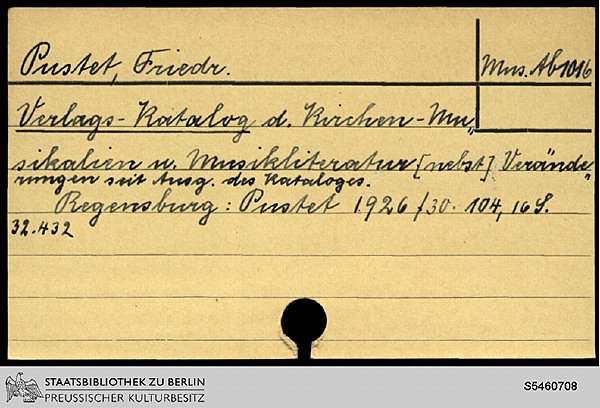 Pustet, Friedr.
Mus. Ab 1016
Verlags-Katalog d. Kirchen-Mu„
sikalien u. Musikliteratur [nebst] Verände„
rungen seit Ausg. des Kataloges.
Regensburg: Pustet 1926/30. 104, 16 S.
32.432
STAATSBIBLIOTHEK ZU BERLIN
PREUSSISCHER KULTURBESITZ
S5460708